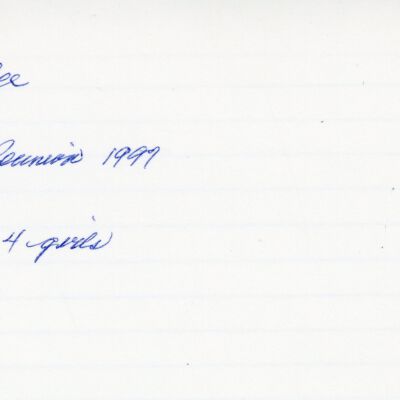 Reunion 1997
4 girls